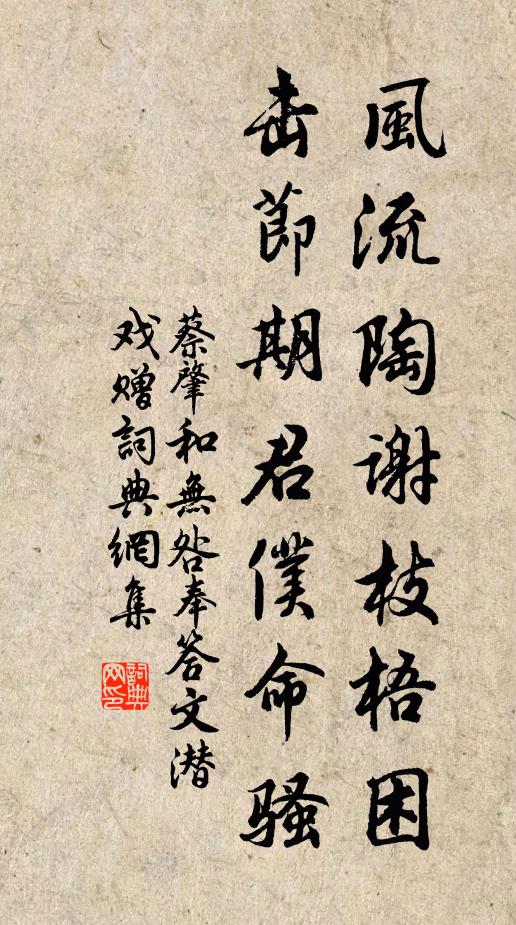 風流陶谢枝梧困
击節期君僕命骚
蔡肇和無咎奉答文潜
戏赠詞典網集
詞典
网印